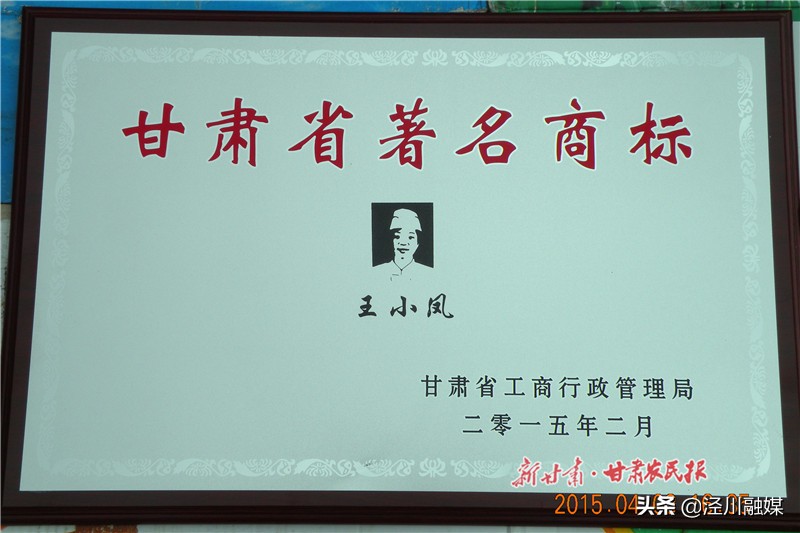 甘肃省著名商标
王小凤
甘肃省工商行政管理局
二零一五年二月
新甘肃·甘肃农民报
2015.04
头条@泾川融媒